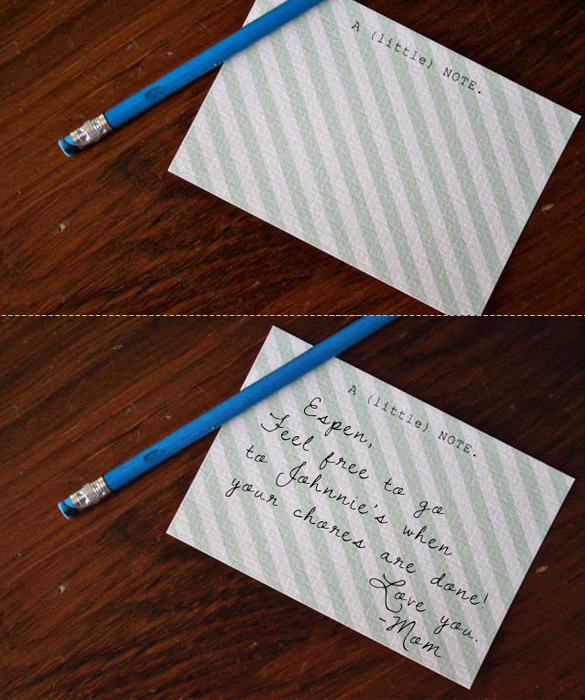 A (little) NOTE.
A (little) NOTE.
Espen,
Feel free to go
to Johnnie's when
your chores are done!
Love you.
-Mom